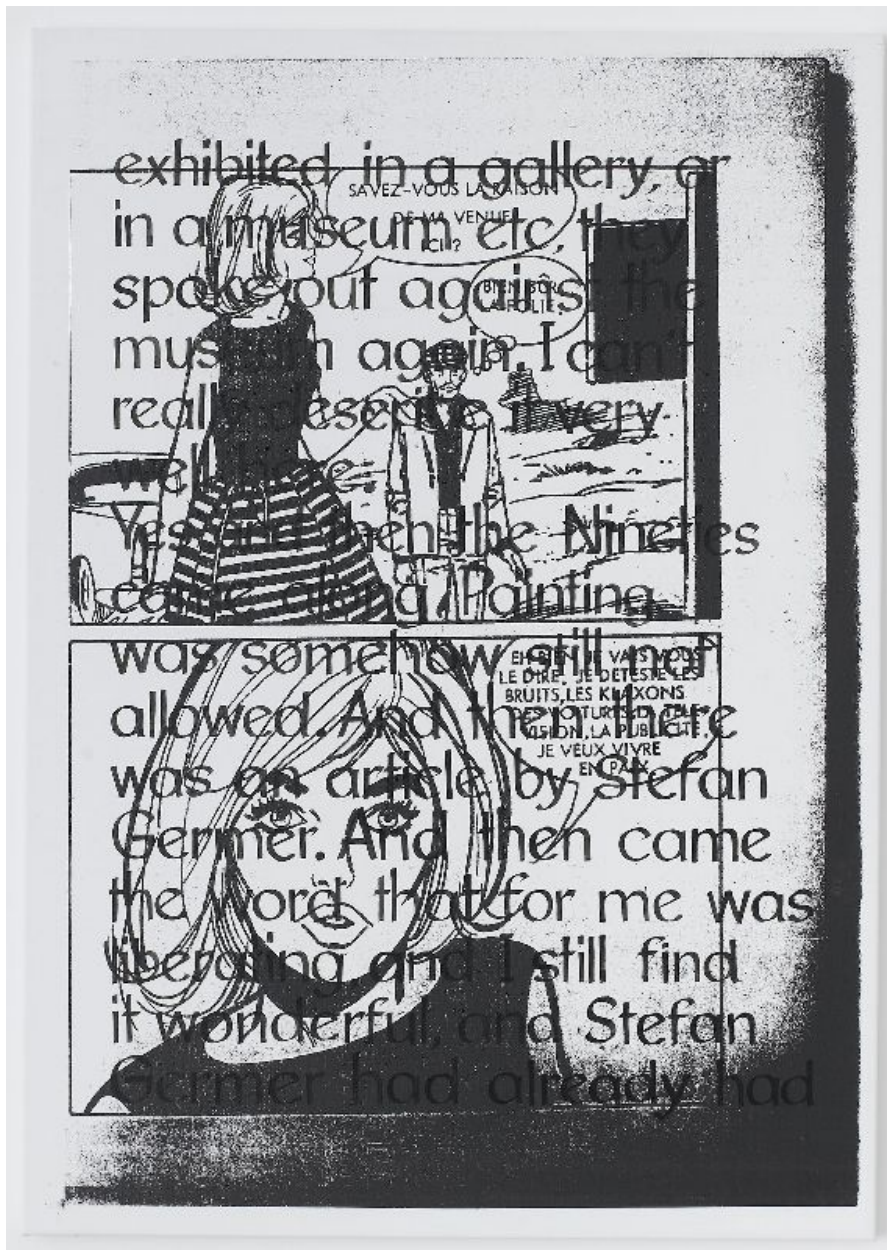 exhibited in a gallery, or
in a museum etc, they
spoke out against the
museum again. I can't
really describe it very
well here.
Yes and then the Nineties
came along. Painting
was somehow still not
allowed. And then there
was an article by Stefan
Germer. And then came
the word that for me was
liberating, and I still find
it wonderful, and Stefan
Germer had already had
SAVEZ-VOUS LA RAISON
DE MA VENUE
ICI ?
BIEN SÛR
LA FOLIE
EH BIEN, JE VAIS VOUS
LE DIRE! JE DÉTESTE LES
BRUITS, LES KLAXONS
DES VOITURES, LA TÉLÉ-
VISION, LA PUBLICITÉ.
JE VEUX VIVRE
EN PAIX